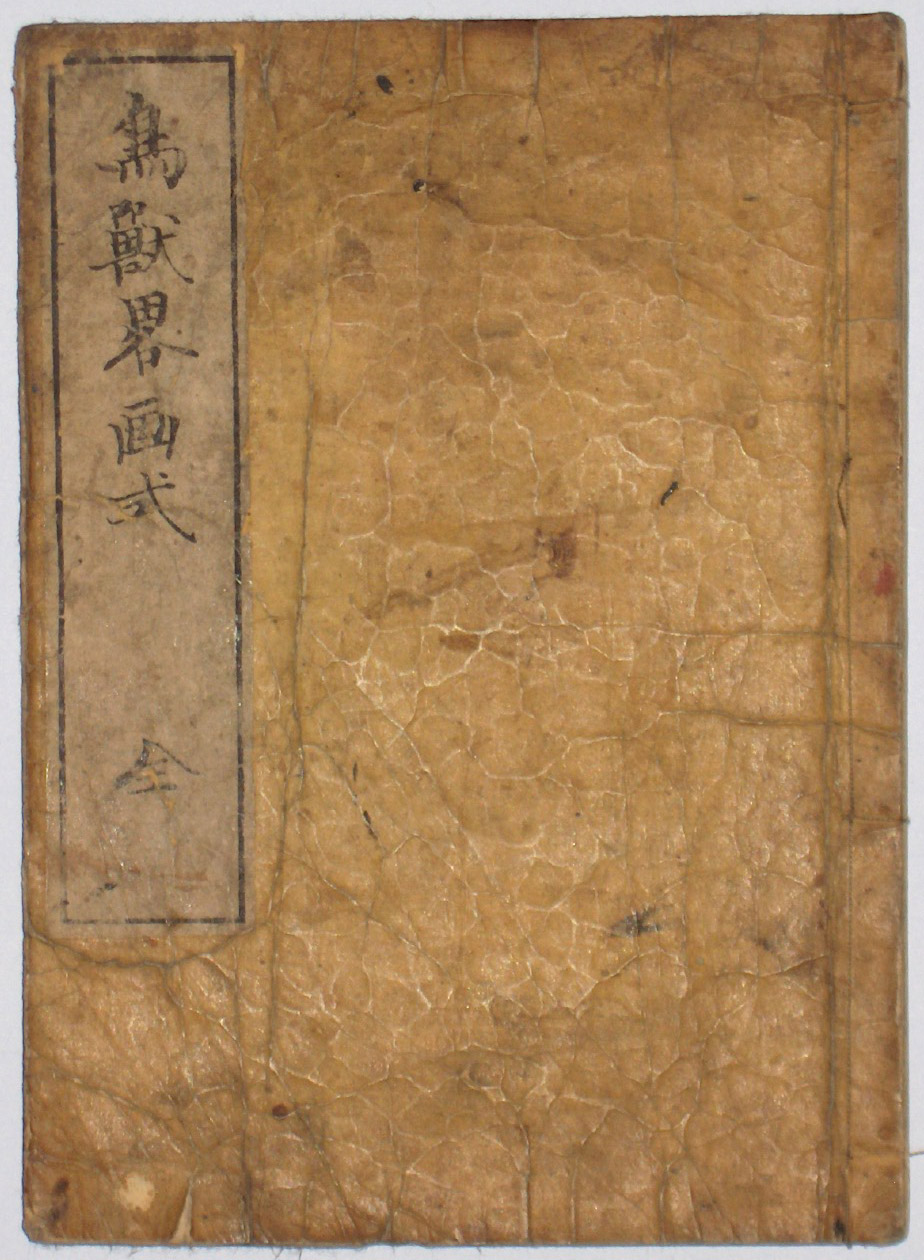 鳥獣畧画式 全